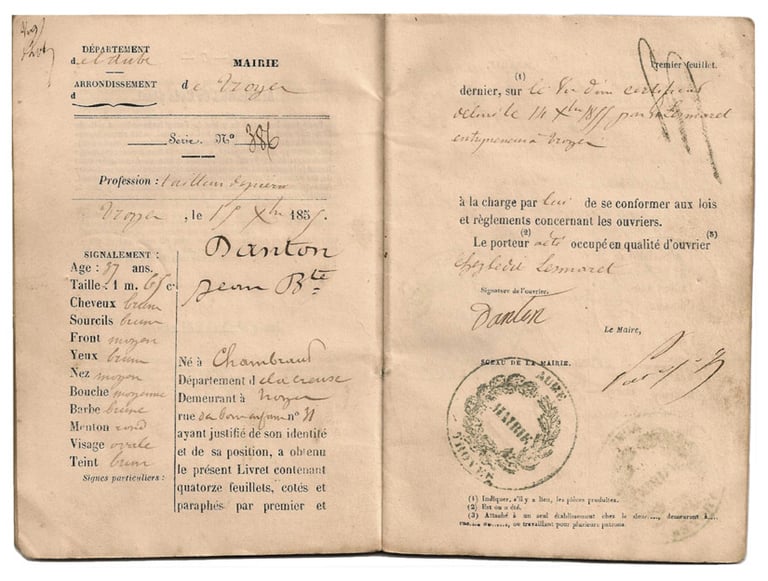 DÉPARTEMENT
de l'aube
ARRONDISSEMENT
d
MAIRIE
de Troyes
Série. N° 386
Profession : tailleur de pierre
Troyes, le 15 Xbre 1855.
SIGNALEMENT :
Age : 37 ans.
Taille : 1 m. 65 c
Cheveux brun
Sourcils brun
Front moyen
Yeux brun
Nez moyen
Bouche moyenne
Barbe brune
Menton rond
Visage ovale
Teint brun
Signes particuliers :
Danton
Jean Bte
Né à Chambraud
Département de la creuse
Demeurant à Troyes
rue du bourg n° 11
ayant justifié de son identité
et de sa position, a obtenu
le présent Livret contenant
quatorze feuillets, cotés et
paraphés par premier et
Premier feuillet.
(1)
dernier, sur le Vu d'un certificat
délivré le 14 Xbre 1855 par Lemoret
entrepreneur à Troyes
à la charge par lui de se conformer aux lois
et règlements concernant les ouvriers.
(2) (3)
Le porteur a été occupé en qualité d'ouvrier
chez ledit Lemoret
Signature de l'ouvrier.
Danton
Le Maire,
SCEAU DE LA MAIRIE.
AUBE
MAIRIE
TROYES
(1) Indiquer, s'il y a lieu, les pièces produites.
(2) Est ou a été.
(3) Attaché à un seul établissement chez le sieur, demeurant à
ou travaillant pour plusieurs patrons.